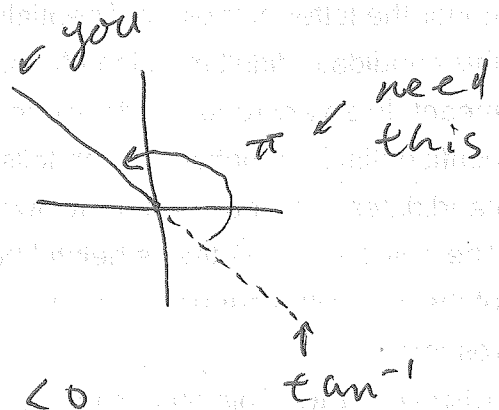 you
π
need
this
tan⁻¹
<0